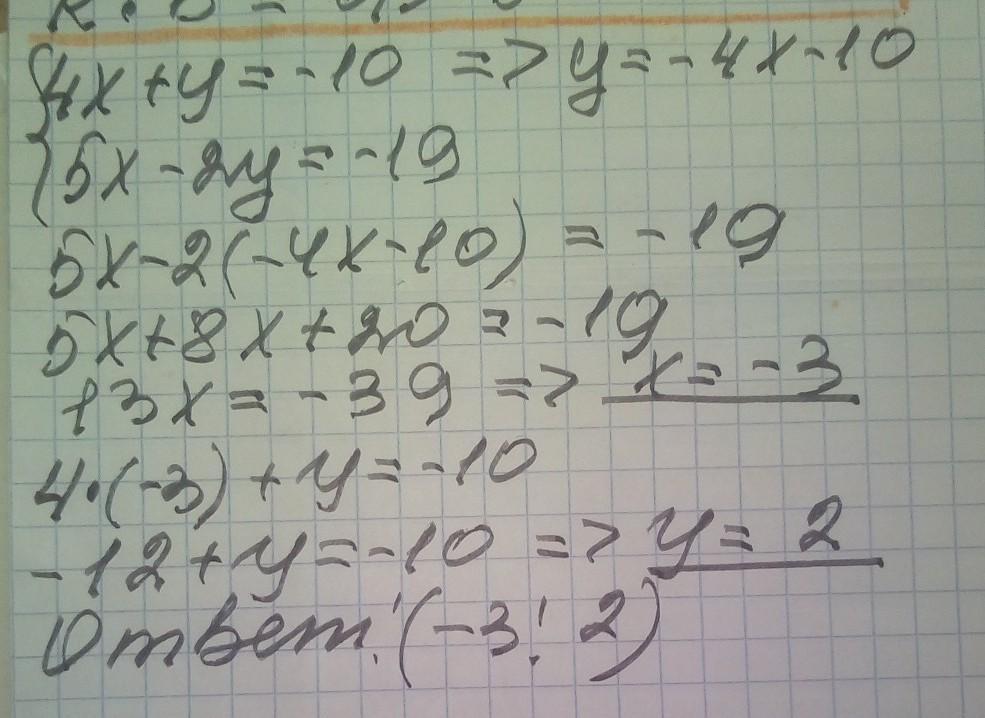 {4x + y = -10 => y = -4x - 10
5x - 2y = -19
5x - 2(-4x - 10) = -19
5x + 8x + 20 = -19
13x = -39 => x = -3
4·(-3) + y = -10
-12 + y = -10 => y = 2
Ответ: (-3; 2)